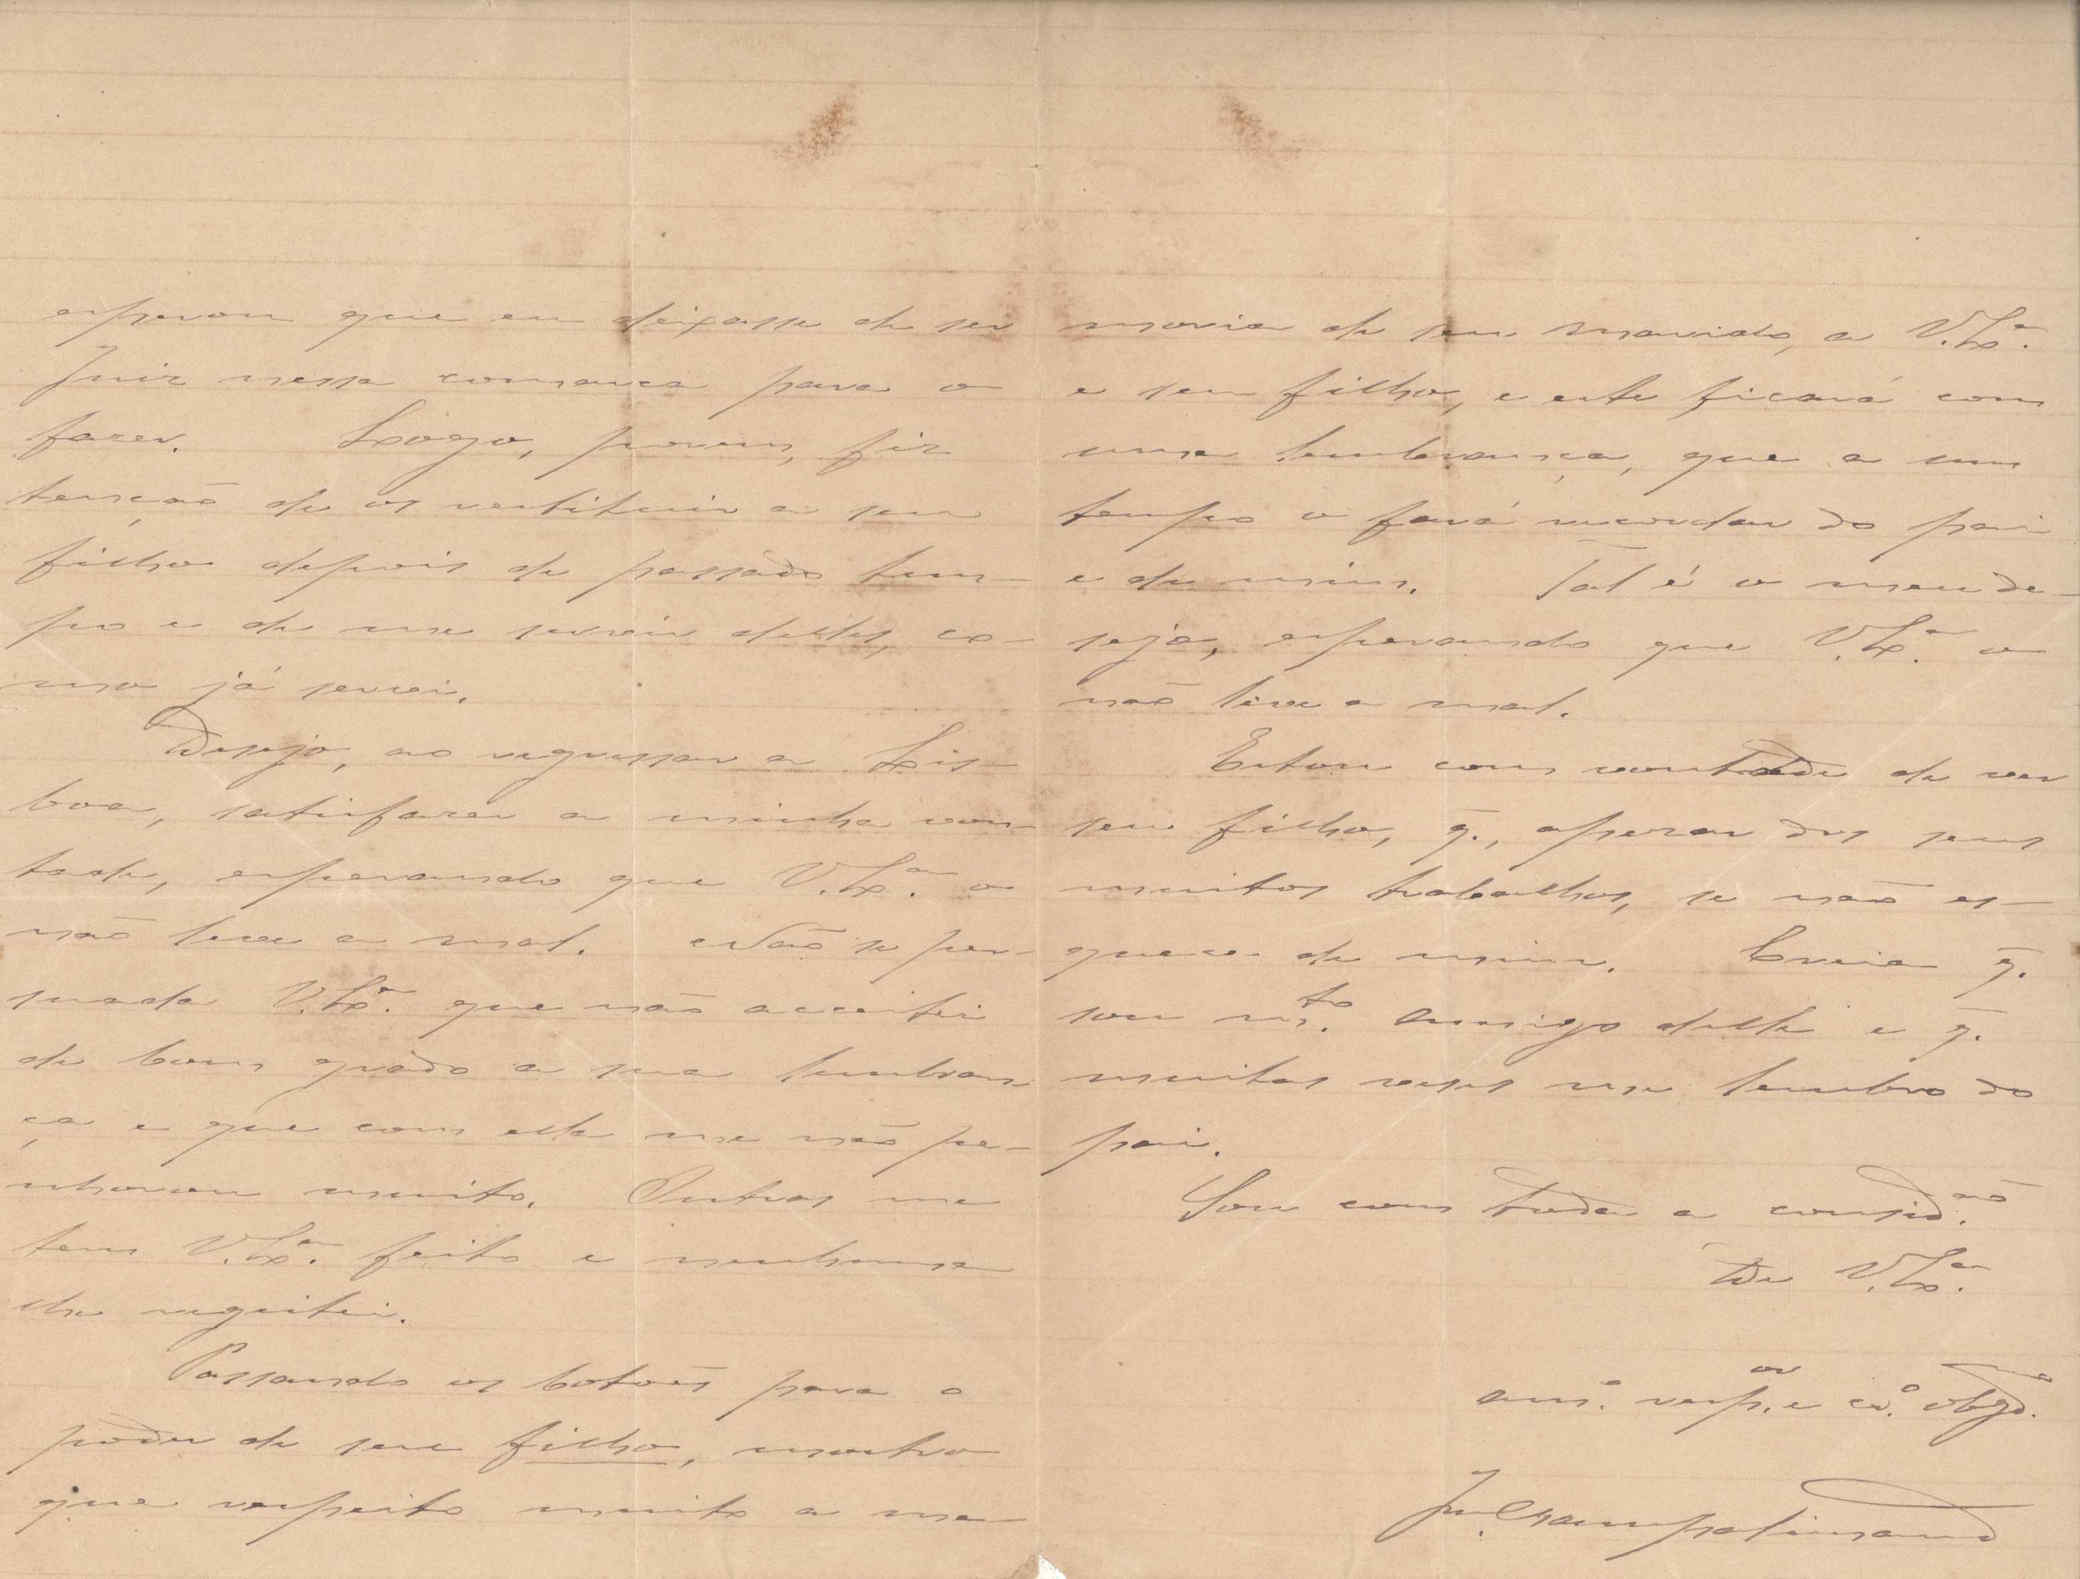 esperou que eu deixasse de ser
Juiz nessa comarca para o
fazer. Lôgo, porem, fiz
tenção de os restituir a seu
filho depois de passado tem-
po e de me servir delles, co-
mo já servi.
Desejo, ao regressar a Lis-
boa, satisfazer a minha von-
tade, esperando que V. Ex.ª o
não leve a mal. Não se per-
suada V. Ex.ª que não acceitei
de bom grado a sua lembran
ça e que com ella me não pe-
nhorou muito. Outras me
tem V. Ex.ª feito e nenhuma
lhe regeitei.
Passando os botões para o
poder de seu filho, mostro
que respeito muito a me-
moria de seu marido, a V. Ex.ª
e seu filho, e este ficará com
uma lembrança, que a um
tempo o fará recordar do pai
e de mim. Tal é o meu de-
sejo, esperando que V. Ex.ª o
não leve a mal.
Estou com vontade de ver
seu filho, q̃., apezar dos seus
muitos trabalhos, se não es-
quece de mim. Creia q̃.
sou m.to amigo delle e q̃.
muitas vezes me lembro do
pai.
Sou com toda a consid.ão
De V. Ex.ª
am.º resp.or e cr.º obgd.mo
J.m Champalimaud